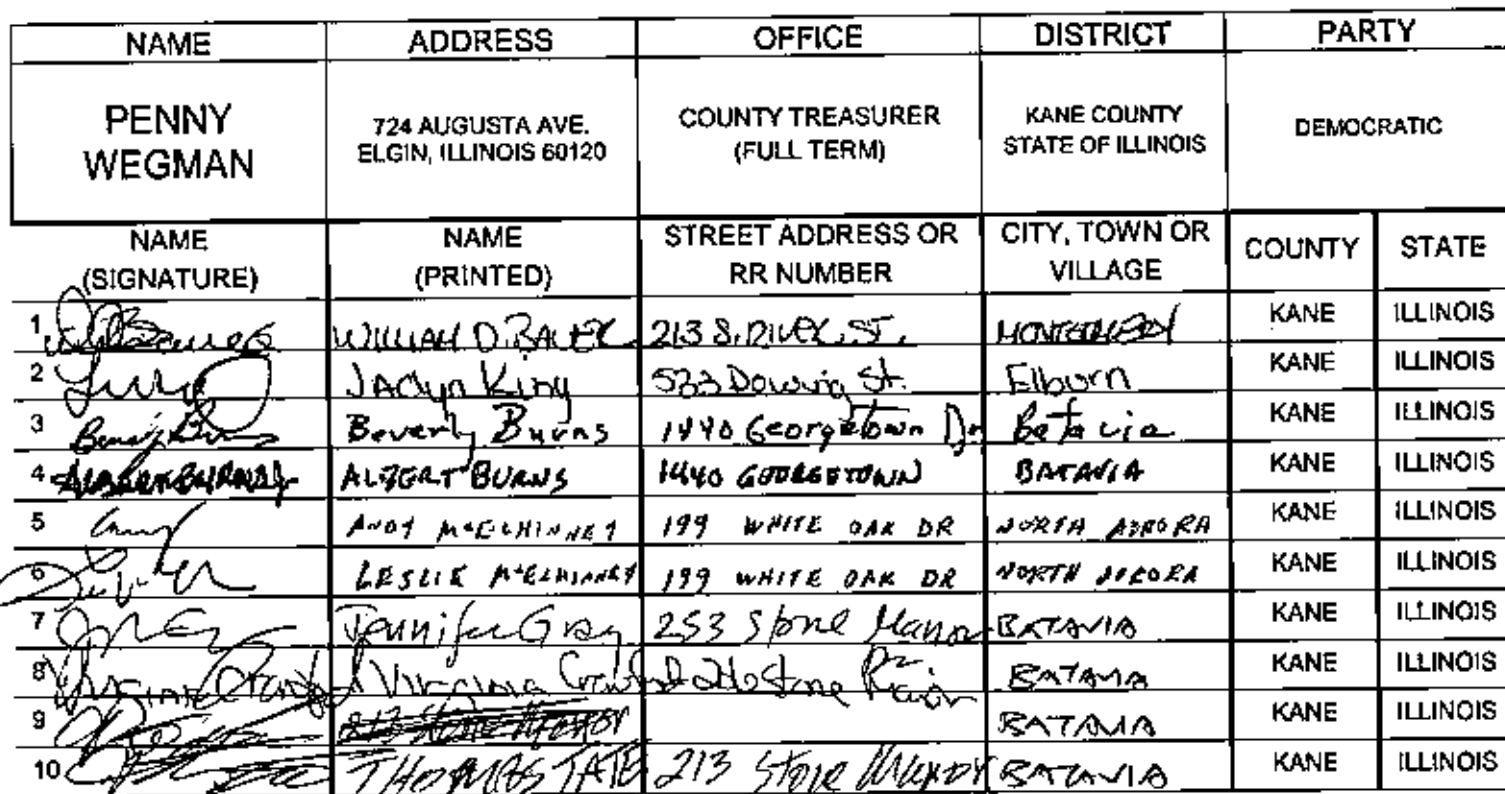 NAME ADDRESS OFFICE DISTRICT PARTY
PENNY WEGMAN 724 AUGUSTA AVE. ELGIN, ILLINOIS 60120 COUNTY TREASURER (FULL TERM) KANE COUNTY STATE OF ILLINOIS DEMOCRATIC
NAME (SIGNATURE) NAME (PRINTED) STREET ADDRESS OR RR NUMBER CITY, TOWN OR VILLAGE COUNTY STATE
1 WILLIAM D. BAUER 213 S. RIVER ST. MONTGOMERY KANE ILLINOIS
2 JAclyn King 533 Dowing St. Elburn KANE ILLINOIS
3 Beverly Burns 1440 Georgetown Dr Batavia KANE ILLINOIS
4 ALBERT BURNS 1440 GEORGETOWN BATAVIA KANE ILLINOIS
5 ANDY McELHINNEY 199 WHITE OAK DR NORTH AURORA KANE ILLINOIS
6 LESLIE McELHINNEY 199 WHITE OAK DR NORTH AURORA KANE ILLINOIS
7 Jennifer Gray 253 Stone Manor BATAVIA KANE ILLINOIS
8 Virginia Crawford Stone BATAVIA KANE ILLINOIS
9 BATAVIA KANE ILLINOIS
10 THOMAS TATE 213 Stone Manor BATAVIA KANE ILLINOIS